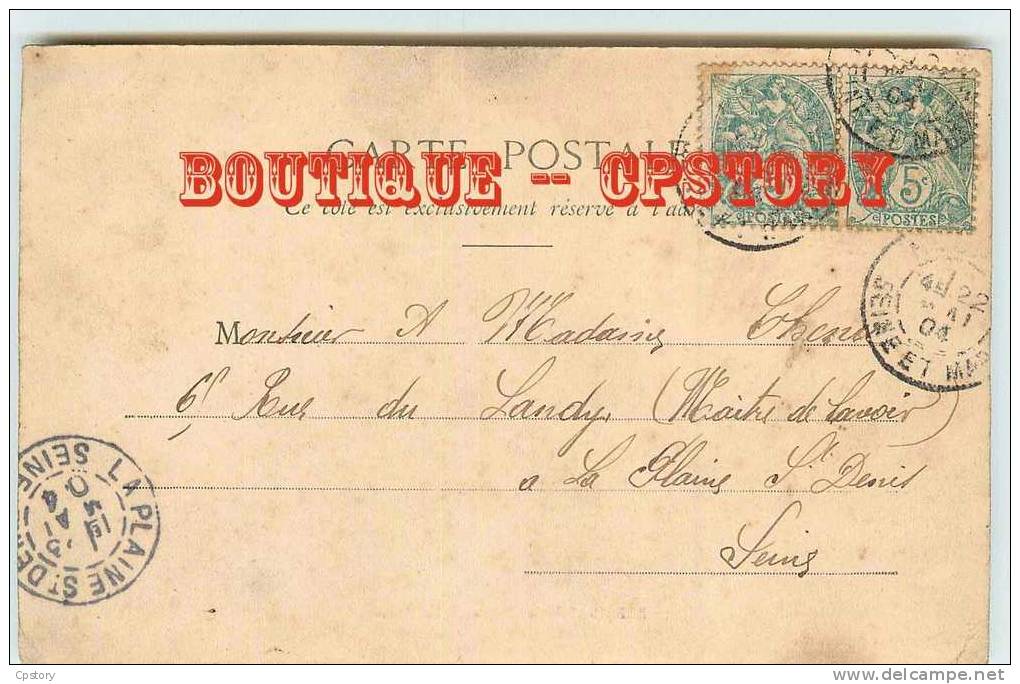 CARTE POSTALE
BOUTIQUE -- CPSTORY
Ce côté est exclusivement réservé à l'adr
5c 5c
POSTES POSTES
22
MAI
04
SEINE ET MAR
Monsieur A Madame
6 Rue du Landy (Maitre de lavoir)
a La Plaine St Denis
Seine
LA PLAINE ST DENIS
SEINE
04
Cpstory
delcampe.net